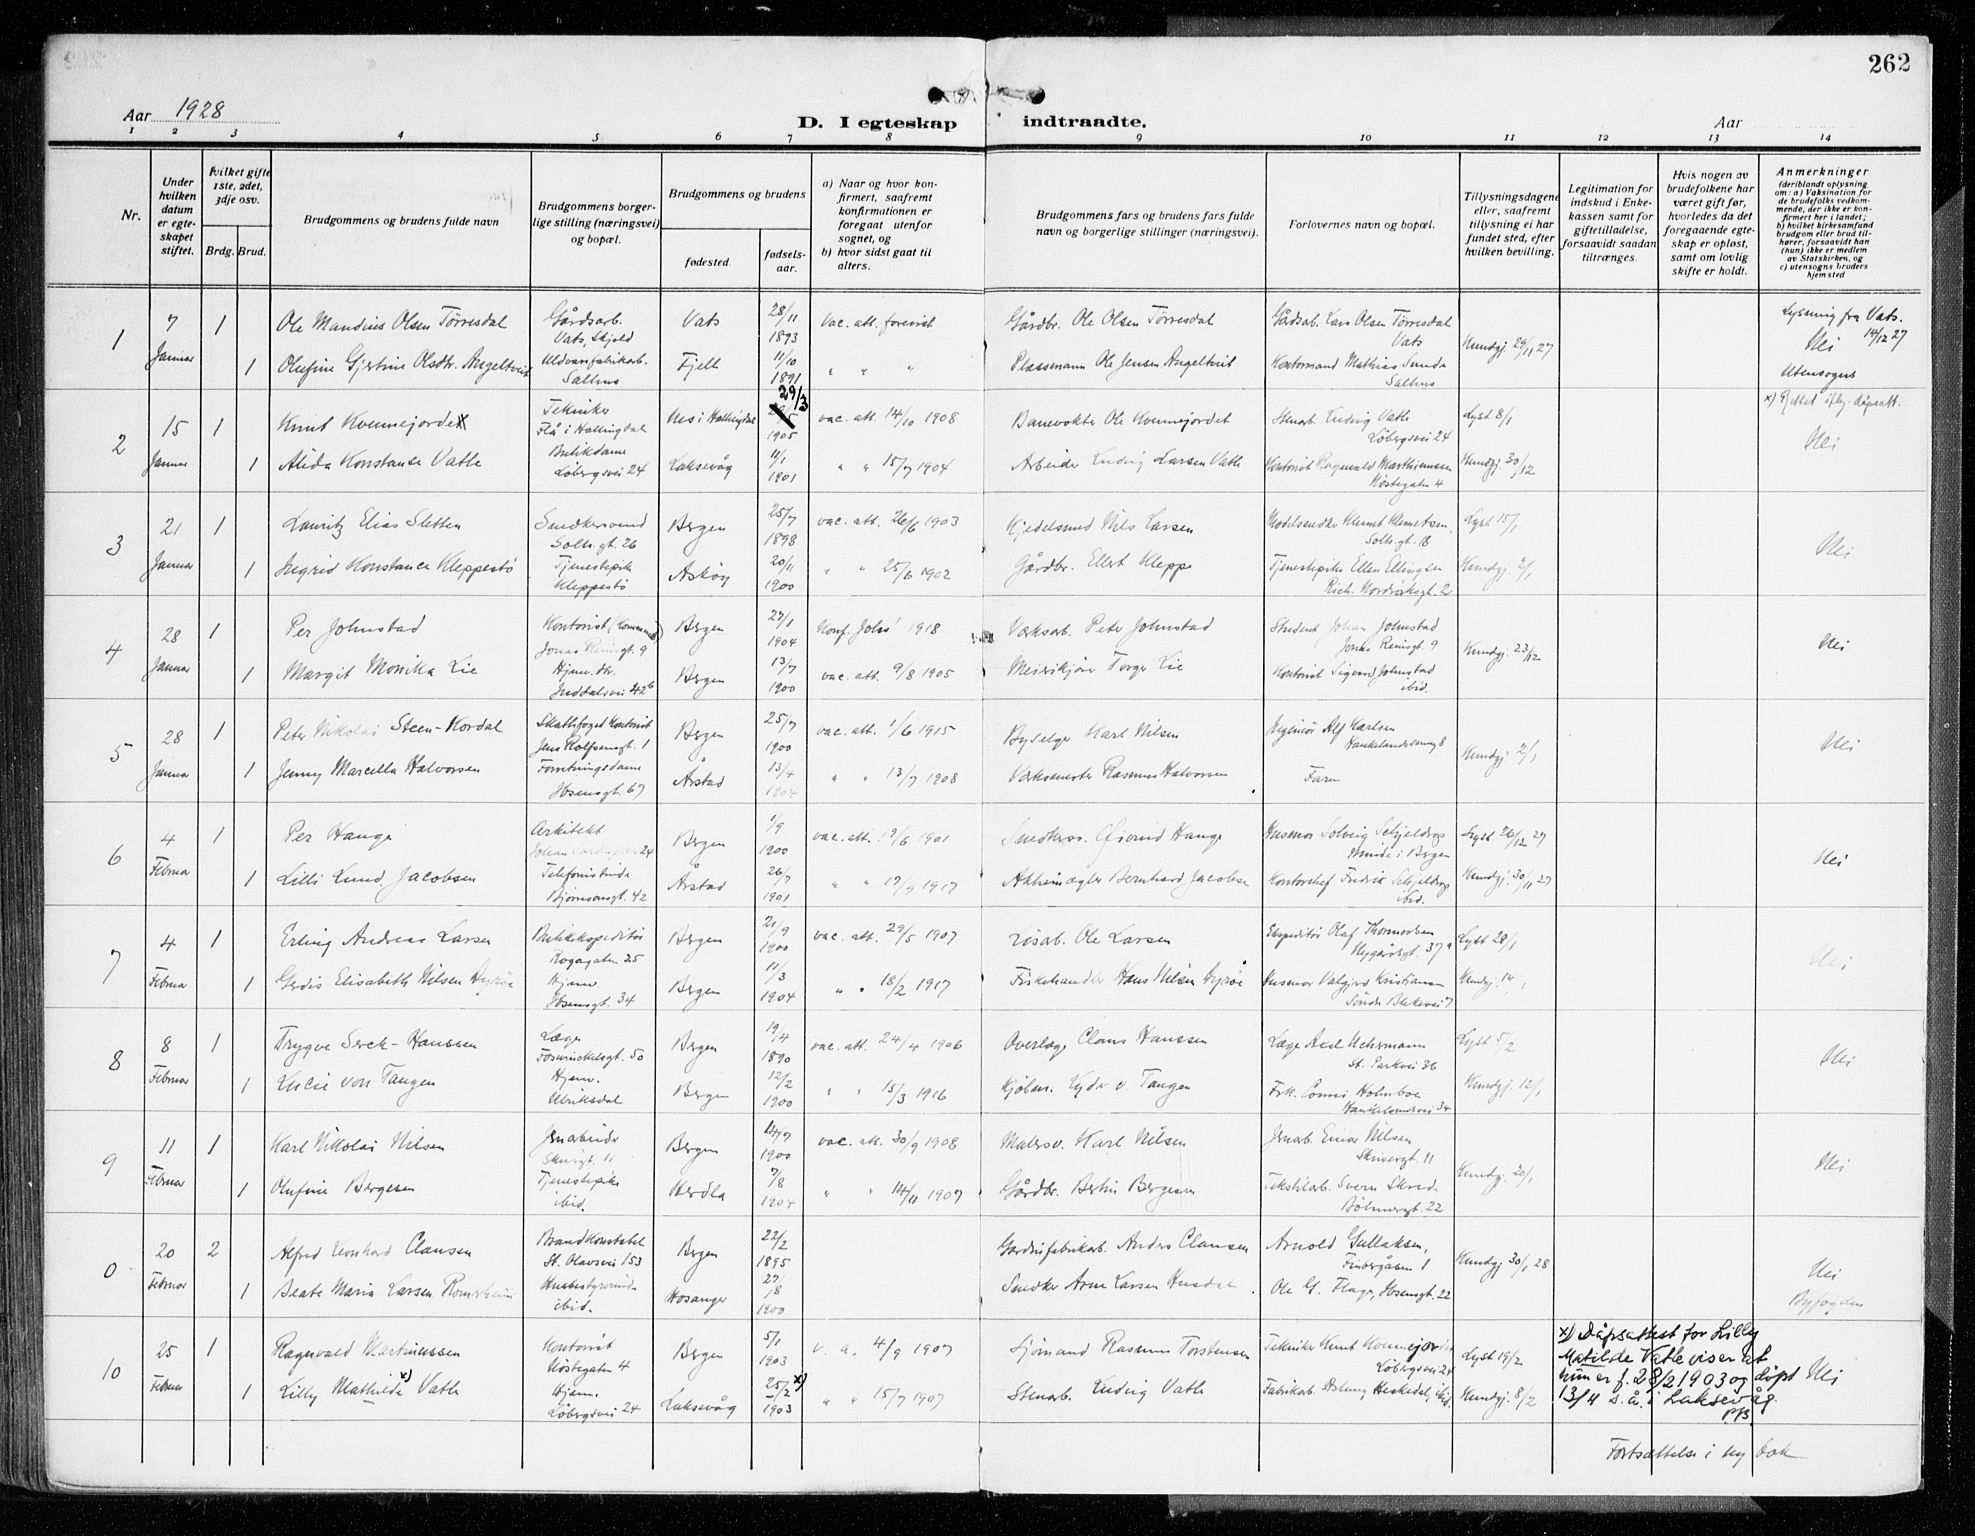 262
Aar 1928
D. I egteskap indtraadte.
Aar
1 2 3 4 5 6 7 8 9 10 11 12 13 14
Nr.
Under hvilken datum er egteskapet stiftet.
Hvilket gifte 1ste, 2det, 3dje osv.
Brdg. Brud.
Brudgommens og brudens fulde navn
Brudgommens borgerlige stilling (næringsvei) og bopæl.
Brudgommens og brudens
fødested. fødselsaar.
a) Naar og hvor konfirmert, saafremt konfirmationen er foregaat utenfor sognet, og
b) hvor sidst gaat til alters.
Brudgommens fars og brudens fars fulde navn og borgerlige stillinger (næringsvei).
Forlovernes navn og bopæl.
Tillysningsdagene eller, saafremt tillysning ei har fundet sted, efter hvilken bevilling.
Legitimation for indskud i Enkekassen samt for giftetilladelse, forsaavidt saadan tiltrænges.
Hvis nogen av brudefolkene har været gift før, hvorledes da det foregaaende egteskap er opløst, samt om lovlig skifte er holdt.
Anmerkninger (deriblandt oplysning om: a) Vaksination for de brudefolks vedkommende, der ikke er konfirmert her i landet; b) hvilket kirkesamfund brudgom eller brud tilhører, forsaavidt han (hun) ikke er medlem av Statskirken, og c) utensogns bruders hjemsted
1 7 Januar 1 Ole Mandius Olsen Tørresdal Gårdsarb. Vats, Skjold Vats 28/11 1893 Vac. att. forevist Gårdbr. Ole Olsen Tørresdal Gårdsab. Lars Olsen Tørresdal Vats Kundgj. 29/11 27 Lysning fra Vats. 14/12 27 Nei
1 Olufine Gjertine Olsdtr. Angeltveit Uldvarefabrikarb. Salhus Fjell 11/10 1891 " " " Plassmann Ole Jensen Angeltveit Kontormand Mathias Sunde Salhus Utensogns
2 15 Januar 1 Knut Kvennejordet Tekniker Flå i Hallingdal Nes i Hallingdal 29/3 1905 vac. att. 14/10 1908 Banevokter Ole Kvennejordet Stenarb. Ludvig Vatle Løbergsvei 24 Lyst 8/1 x) Rettet ifly. dåpsatt. Nei
1 Alida Konstanse Vatle Butikdame Løbergsvei 24 Laksevåg 11/1 1901 " " 15/7 1904 Arbeider Ludvig Larsen Vatle Kontorist Ragnvald Marthinussen Nøstegaten 4 Kundgj. 30/12
3 21 Januar 1 Lauritz Elias Sletten Snedkersvend Solh.gt. 26 Bergen 25/7 1898 vac. att. 26/6 1903 Kjedelsmed Nils Larsen Modelsnedker Klemet Klemetsen, Solh.gt. 18 Lyst 15/1 Nei
1 Ingrid Konstance Kleppestø Tjenestepike Kleppestø Askøy 20/11 1900 " " 25/6 1902 Gårdbr. Ellert Kleppe Tjenestepike Ellen Ellingsen Rich. Nordråksgt. 2 Kundgj. 2/1
4 28 Januar 1 Per Johnstad Kontorist Jonas Reinsgt. 9 Bergen 27/1 1904 Konf. Johs' 1918 Værksarb. Peter Johnstad Student Johan Johnstad Jonas Reinsgt 9 Kundgj. 23/12 Nei
1 Margit Monika Lie Hjem. Inddalsvei 42b Bergen 13/7 1900 vac. att. 9/8 1905 Meierikjører Torger Lie Kontorist Sigurd Johnstad ibid.
5 28 Januar 1 Peter Nikolai Steen-Kordal Skattefoged Kontorist Jens Rolfsensgt. 1 Bergen 25/7 1900 vac. att. 1/6 1915 Byselger Karl Nilsen Ingeniør Alf Karlsen Haukelandsveien 8 Kundgj. 2/1 Nei
1 Jenny Marcella Halvorsen Forretningsdame Ibsensgt. 67 Årstad 13/4 1904 " " 13/7 1908 Værksmester Rasmus Halvorsen Faren
6 4 Februar 1 Per Hauge Arkitekt 24 Bergen 1/9 1900 vac. att. 17/6 1901 Snedkersv. Øivind Hauge Husmor Solveig Schjelderup Minde i Bergen Lyst 26/12 27 Nei
1 Lilli Lund Jacobsen Telefonistinde Bjørnsonsgt. 42 Årstad 26/7 1901 " " 17/9 1917 Aktiemægler Bernhard Jacobsen Kontorchef Fredrik Schjelderup ibid. Kundgj. 30/11 27
7 4 Februar 1 Erling Andreas Larsen Butikekspeditør Rogagaten 25 Bergen 21/9 1900 vac. att. 29/5 1907 Losab. Ole Larsen Ekspeditør Olaf Thormodsen Nygårdsgt. 37a Lyst 28/1 Nei
1 Gerdis Elisabeth Nilsen Hyrøe Hjem. Ibsensgt. 34 Bergen 11/3 1904 " " 18/2 1917 Fiskehandler Hans Nilsen Hyrøe Husmor Valgjerd Kristiansen Søndre Blekevei 7 Kundgj. 14/1
8 8 Februar 1 Trygve Serck-Hanssen Læge Fosswinckelsgt. 50 Bergen 19/4 1890 vac. att. 24/4 1906 Overlæge Claus Hanssen Læge Axel Uchermann St. Parkvei 36 Lyst 5/2 Nei
1 Lucie von Tangen Hjem. Ulriksdal Bergen 12/2 1900 " " 15/3 1916 Kjøbm. Eyder v. Tangen Frk. Connie Holmboe Haukelandsvei 34 Kundgj. 12/1
9 11 Februar 1 Karl Nikolai Nilsen Jernabeider Skivergt. 11 Bergen 14/7 1900 vac. att. 30/9 1908 Malersv. Karl Nilsen Jernab. Einar Nilsen Skivergt. 11 Kundgj. 20/1 Nei
1 Olufine Bergesen Tjenestepike ibid. Herdla 7/8 1904 " " 14/11 1907 Gårdbr. Bertin Bergesen Tekstilarb. Svern Skred. Bøhmergt. 22
0 20 Februar 2 Alfred Leonhard Clausen Brandkonstabel St. Olavsvei 153 Bergen 22/2 1895 Gardinfabrikarb. Anders Clausen Arnold Gullaksen, Finbergåsen 1 Kundgj 30/1 28 Nei
1 Beate Maria Larsen Romarheim Husbestyrerinde ibid. Hosanger 27/8 1900 Snedker Arne Larsen Husdal Ole G. Flage, Ibsensgt. 22 Byfogden
10 25 Februar 1 Ragnvald Martinussen Kontorist Nøstegaten 4 Bergen 5/1 1903 v. a. 4/9 1907 Sjømand Rasmus Torstensen Tekniker Knut Kvennejordet Løbergsvei 24 Lyst 19/2 Nei
1 Lilly Mathilde x) Vatle Hjem. Løbergsvei 24 Laksevåg 25/2 x) 1903 " " 15/7 1907 Stenarb. Ludvig Vatle Fabrikarb. Aslaug Heskedal, ibid. Kundgj. 8/2
x) Dåpsattest for Lilly
Matilde Vatle viser at
hun er f. 28/2 1903 og døpt
13/4 s.å. i Laksevåg.
P.B.
Fortsættelse i ny bok